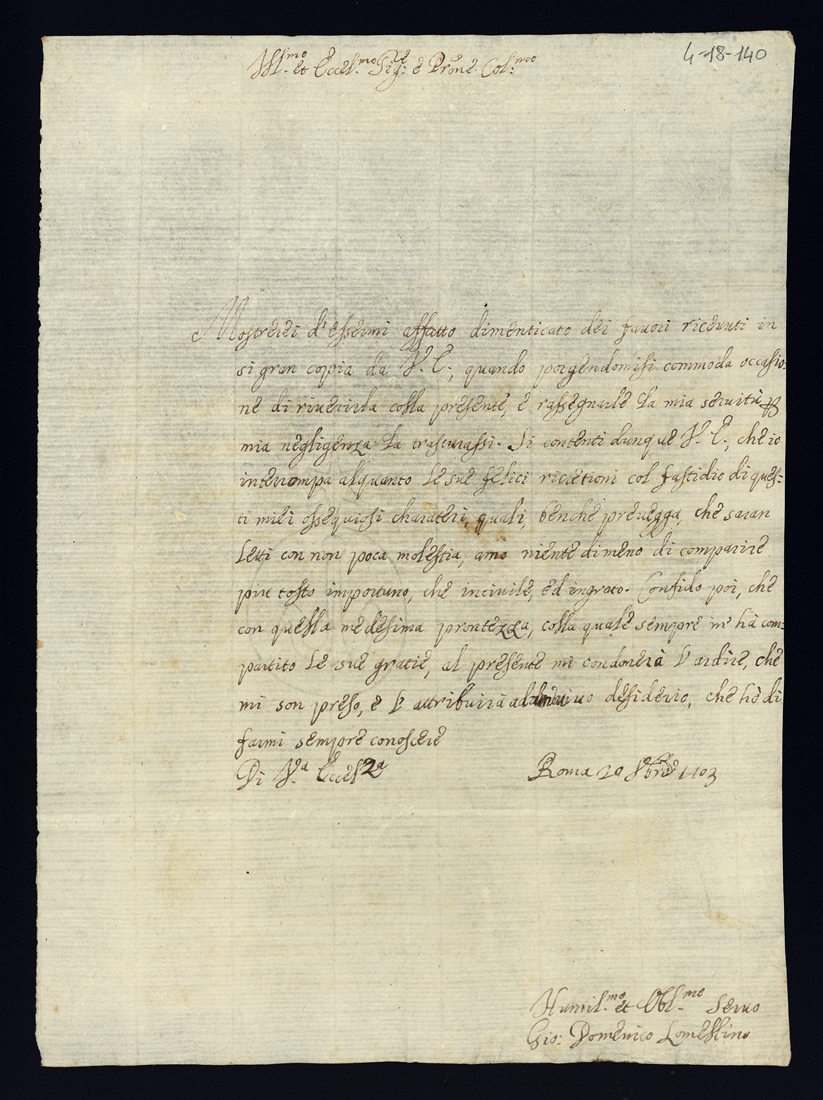 4-18-140
Ill.mo et Eccel.mo Sig.re e Prone Col.mo
Mostrerei d'essermi affatto dimenticato dei fauori riceuuti in
si gran copia da V. E., quando porgendomisi commoda occasio-
ne di riuerirla colla presente, e rassegnarle la mia seruitù
mia negligenza la trascurassi. Si contenti dunque V. E., che io
interrompa alquanto le sue felici ricretioni col fastidio di ques-
ti miei ossequiosi charateri, quali, benche preuegga, che saran
letti con non poca molestia, amo niente di meno di comparire
piu tosto importuno, che inciuile, ed ingrato. Confido poi, che
con quella medesima prontezza, colla quale sempre m'hà com-
partito le sue gratie, al presente mi condonerà l'ardire, che
mi son preso, e l'attribuirà al uiuo desiderio, che hò di
farmi sempre conoscere
Di V.a Eccel.za Roma 20
Humil.mo et Obl.mo Seruo
Gio: Domenico Lomellino